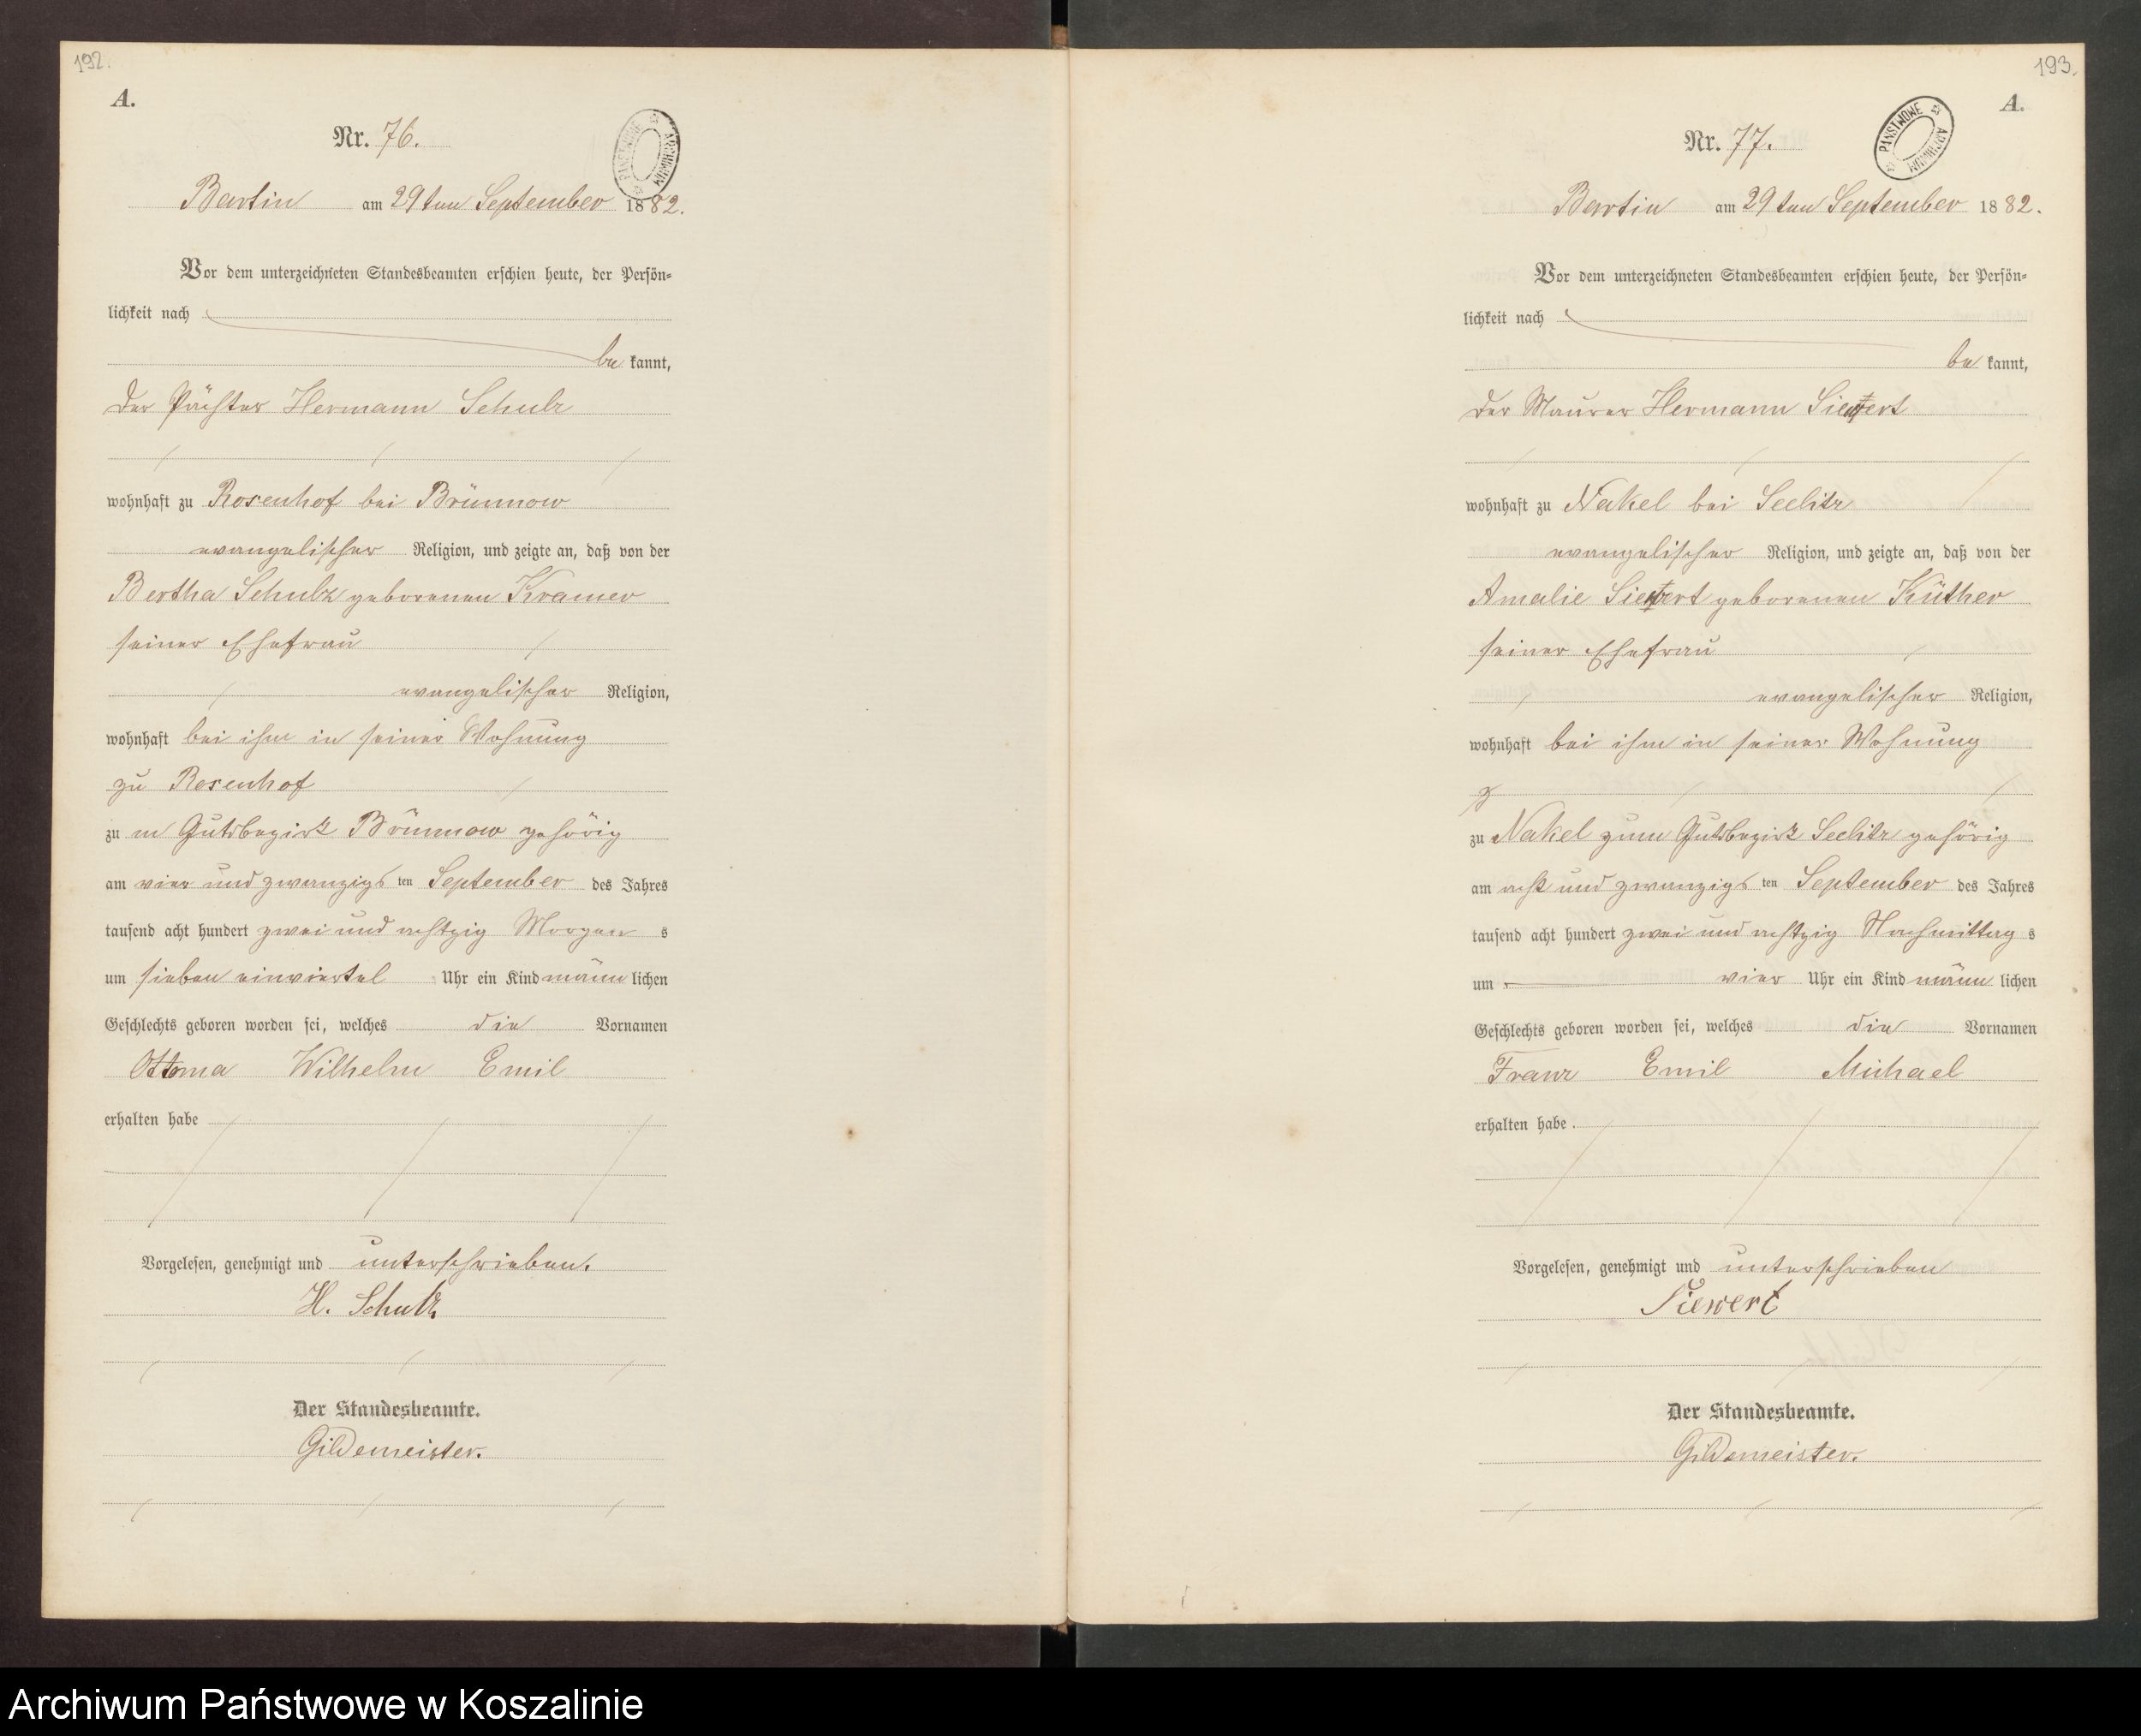 192.
A.
Nr. 76.
PAŃSTWOWE ARCHIWUM
Bartin am 29ten September 1882.
Vor dem unterzeichneten Standesbeamten erschien heute, der Persön=
lichkeit nach
be kannt,
der Pächter Hermann Schulz
wohnhaft zu Rosenhof bei Brünnow
evangelischer Religion, und zeigte an, daß von der
Bertha Schulz geborenen Kramer
seiner Ehefrau
evangelischer Religion,
wohnhaft bei ihm in seiner Wohnung
zu Rosenhof
zu m Gutsbezirk Brünnow gehörig
am vier und zwanzigs ten September des Jahres
tausend acht hundert zwei und achtzig Morgen s
um sieben einviertel Uhr ein Kind männ lichen
Geschlechts geboren worden sei, welches die Vornamen
Ottoma Wilhelm Emil
erhalten habe
Vorgelesen, genehmigt und unterschrieben.
H. Schulz
Der Standesbeamte.
Gildemeister.
193.
A.
Nr. 77.
PAŃSTWOWE ARCHIWUM
Bartin am 29ten September 1882.
Vor dem unterzeichneten Standesbeamten erschien heute, der Persön=
lichkeit nach
be kannt,
der Maurer Hermann Siewert
wohnhaft zu Nakel bei Seelitz
evangelischer Religion, und zeigte an, daß von der
Amalie Siewert geborenen Küther
seiner Ehefrau
evangelischer Religion,
wohnhaft bei ihm in seiner Wohnung
zu Nakel zum Gutsbezirk Seelitz gehörig
am acht und zwanzigs ten September des Jahres
tausend acht hundert zwei und achtzig Nachmittag s
um vier Uhr ein Kind männ lichen
Geschlechts geboren worden sei, welches die Vornamen
Franz Emil Michael
erhalten habe
Vorgelesen, genehmigt und unterschrieben
Siewert
Der Standesbeamte.
Gildemeister.
Archiwum Państwowe w Koszalinie